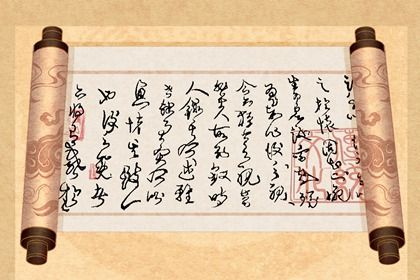 之於懷固知一死
生為虛誕齊彭殤
為妄作後之視
今亦今之視昔
悲夫故列敘時
人錄其所述雖
世殊事異所以
興懷其致一也
後之覽者
亦將有感於斯